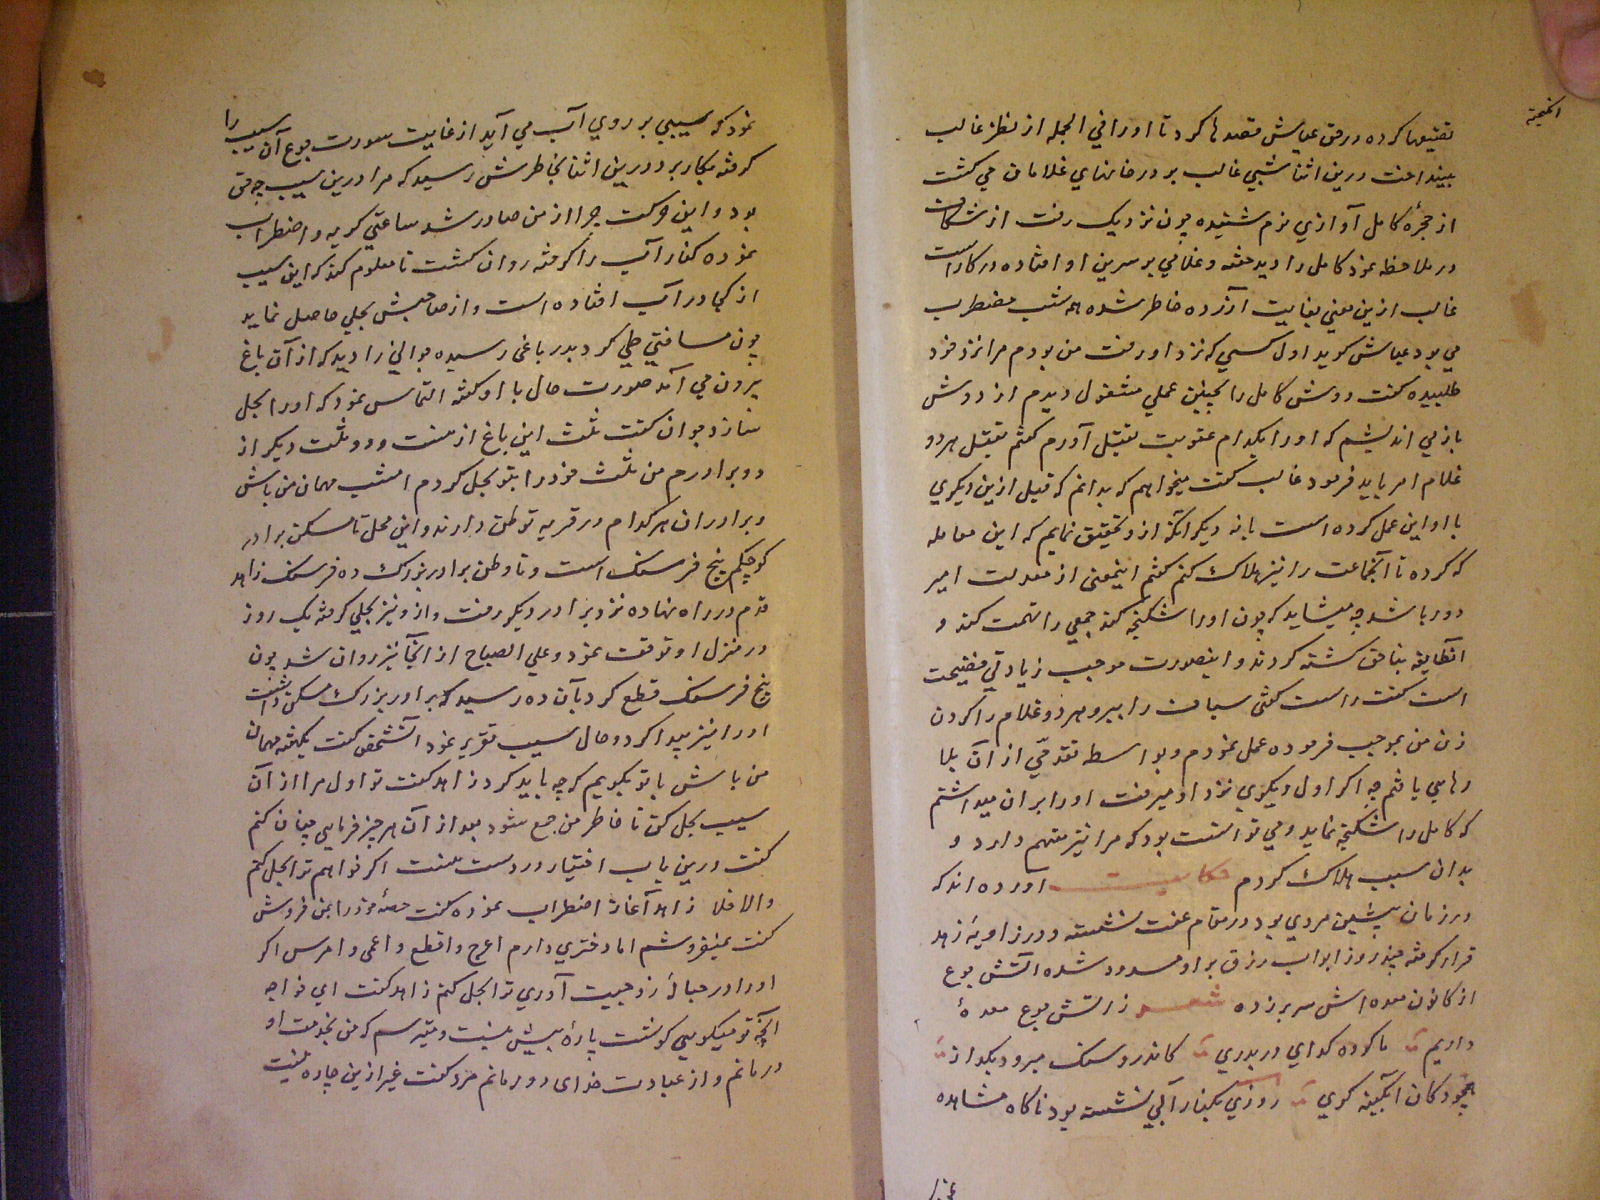 تفتیشها کرده در حق عیاش قصدها کرد تا او را فی الجمله از نظر غالب
بینداخت درین اثنا شبی غالب بر در خانهای غلامان می گشت
از حجرهٔ کامل آوازی نرم شنیده چون نزدیک رفت از شکاف
در ملاحظه نمود کامل را دید خفته و غلامی بر سرین او افتاده در کار است
غالب ازین معنی بغایت آزرده خاطر شده همه شب مضطرب
می بود عیاش گوید اول کسی که نزد او رفت من بودم مرا نزد خود
طلبیده گفت دوش کامل را بچنین عملی مشغول دیدم از دوش
باز می اندیشم که او را بکدام عقوبت بقتل آورم گفتم بقتل هر دو
غلام امر باید فرمود غالب گفت میخواهم که بدانم که قبل ازین دیگری
با او این عمل کرده است یا نه دیگر آنکه ازو تحقیق نمایم که این معامله
که کرده تا آنجماعت را نیز هلاک کنم گفتم اینمعنی از معدلت امیر
دور باشد چه میشاید که چون او را شکنجه کند جمعی را تهمت کند و
آنطایفه بناحق کشته گردند و اینصورت موجب زیادتی فضیحت
است گفت راست گفتی سیاف را ببر و هر دو غلام را گردن
زن من بموجب فرموده عمل نمودم و بواسطه تقدمی از آن بلا
رهایی یافتم چه اگر اول دیگری نزد او میرفت او را بر آن میداشتم
که کامل را شکنجه نماید و می توانست بود که مرا نیز متهم دارد و
بدان سبب هلاک گردم حکایت آورده اند که
در زمان پیشین مردی بود در مقام عفت نشسته و در زاویهٔ زهد
قرار گرفته چند روز ابواب رزق بر او مسدود شده آتش جوع
از کانون معده اش سر بر زده شعر ز آتش جوع معدهٔ
داریم ما کوره کدای دربدری کاندرو سنک میرود بکداز
همچو دکان آبگینه گری روزی بکنار آبی نشسته بود ناگاه مشاهده
نمود که سیبی بر روی آب می آید از غایت سورت جوع آن سیب را
گرفته بکار برد درین اثنا بخاطرش رسید که مرا درین سیب چه حق
بود و این حرکت چرا از من صادر شد ساعتی گریه و اضطراب
نموده کنار آب را گرفته روان گشت تا معلوم کند که این سیب
از کجا در آب افتاده است و از صاحبش بحلی حاصل نماید
چون مسافتی طی کرد بدر باغی رسیده جوانی را دید که از آن باغ
بیرون می آمد صورت حال با او گفته التماس نمود که او را بحل
سازد جوان گفت ثلث این باغ از منست و دو ثلث دیگر از
دو برادرم من ثلث خود را بتو بحل کردم امشب مهمان من باش
و برادران هر کدام در قریه توطن دارند و این محل تا مسکن برادر
کوچکم پنج فرسنک است و تا وطن برادر بزرک ده فرسنک زاهد
قدم در راه نهاده نزد برادر دیگر رفت و ازو نیز بحلی گرفته یک روز
در منزل او توقف نمود و علی الصباح از آنجا نیز روان شد چون
پنج فرسنک قطع کرد بآن ده رسید که برادر بزرک مسکن داشت
او را نیز پیدا کرد و حال سیب تقریر نمود آنشخص گفت یکهفته مهمان
من باش با تو بگویم که چه باید کرد زاهد گفت تو اول مرا از آن
سیب بحل کن تا خاطر من جمع شود بعد از آن هر چیز فرمایی چنان کنم
گفت درین باب اختیار در دست منست اگر خواهم ترا بحل کنم
والا فلا زاهد آغاز اضطراب نموده گفت حصهٔ خود را بمن فروش
گفت نمیفروشم اما دختری دارم اعرج و اقطع و اعمی و اخرس اگر
او را در حبالهٔ زوجیت آوری ترا بحل کنم زاهد گفت ای خواجه
آنچه تو میگویی گوشت پارهٔ بیش نیست و میترسم که من بخدمت او
درمانم و از عبادت خدای دور مانم مرد گفت غیر ازین چاره نیست